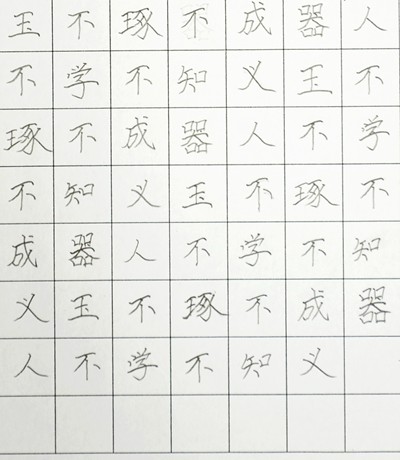 玉不琢不成器人
不学不知义玉不
琢不成器人不学
不知义玉不琢不
成器人不学不知
义玉不琢不成器
人不学不知义